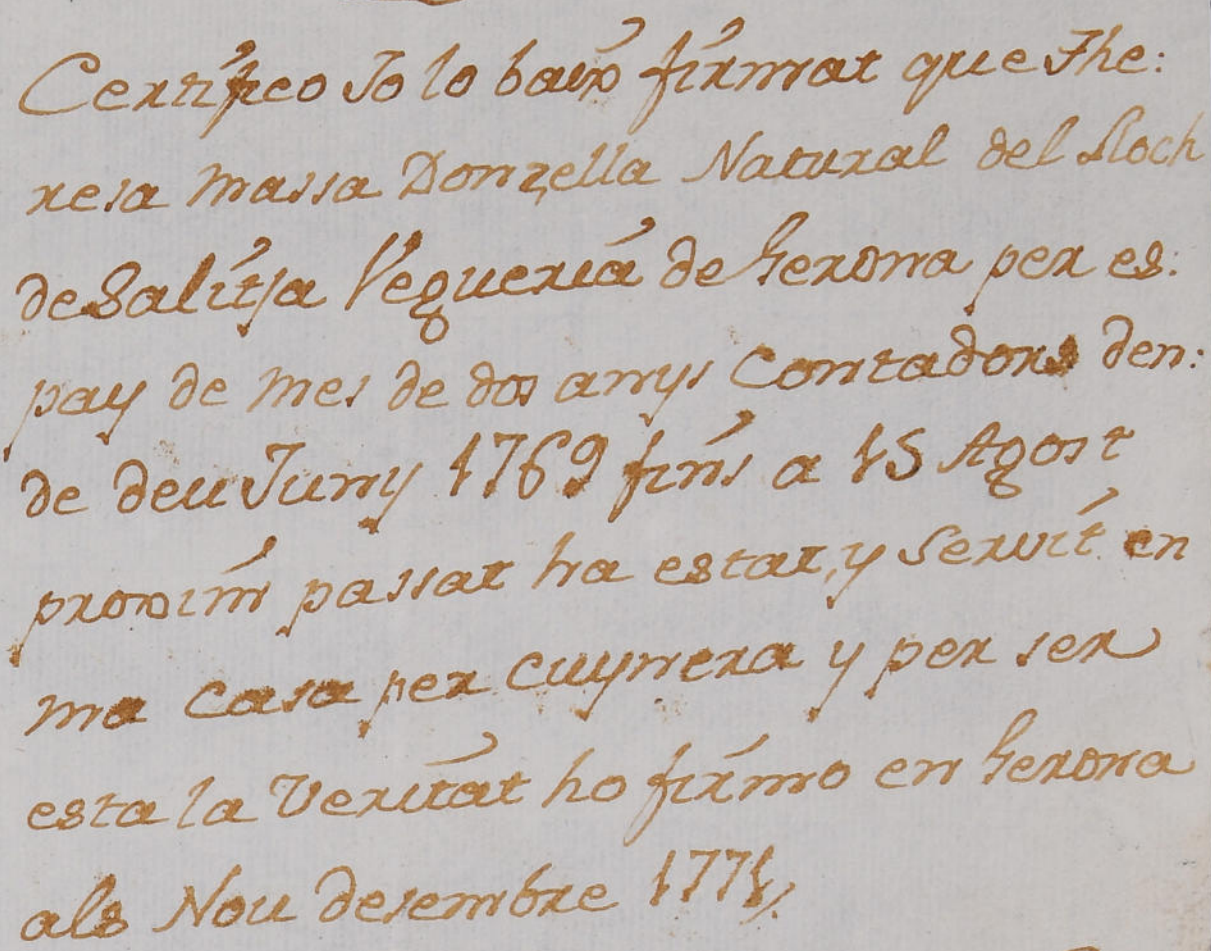 Certifico Jo lo baix firmat que The:
resa Massa Donzella Natural del Lloch
de Salitja Vegueria de Gerona per es:
pay de mes de dos anys Contadors den:
de deu Juny 1769 fins a 15 Agost
proxim passat ha estat, y servit en
ma casa per cuynera y per ser
esta la veritat ho firmo en Gerona
als Nou desembre 1771,